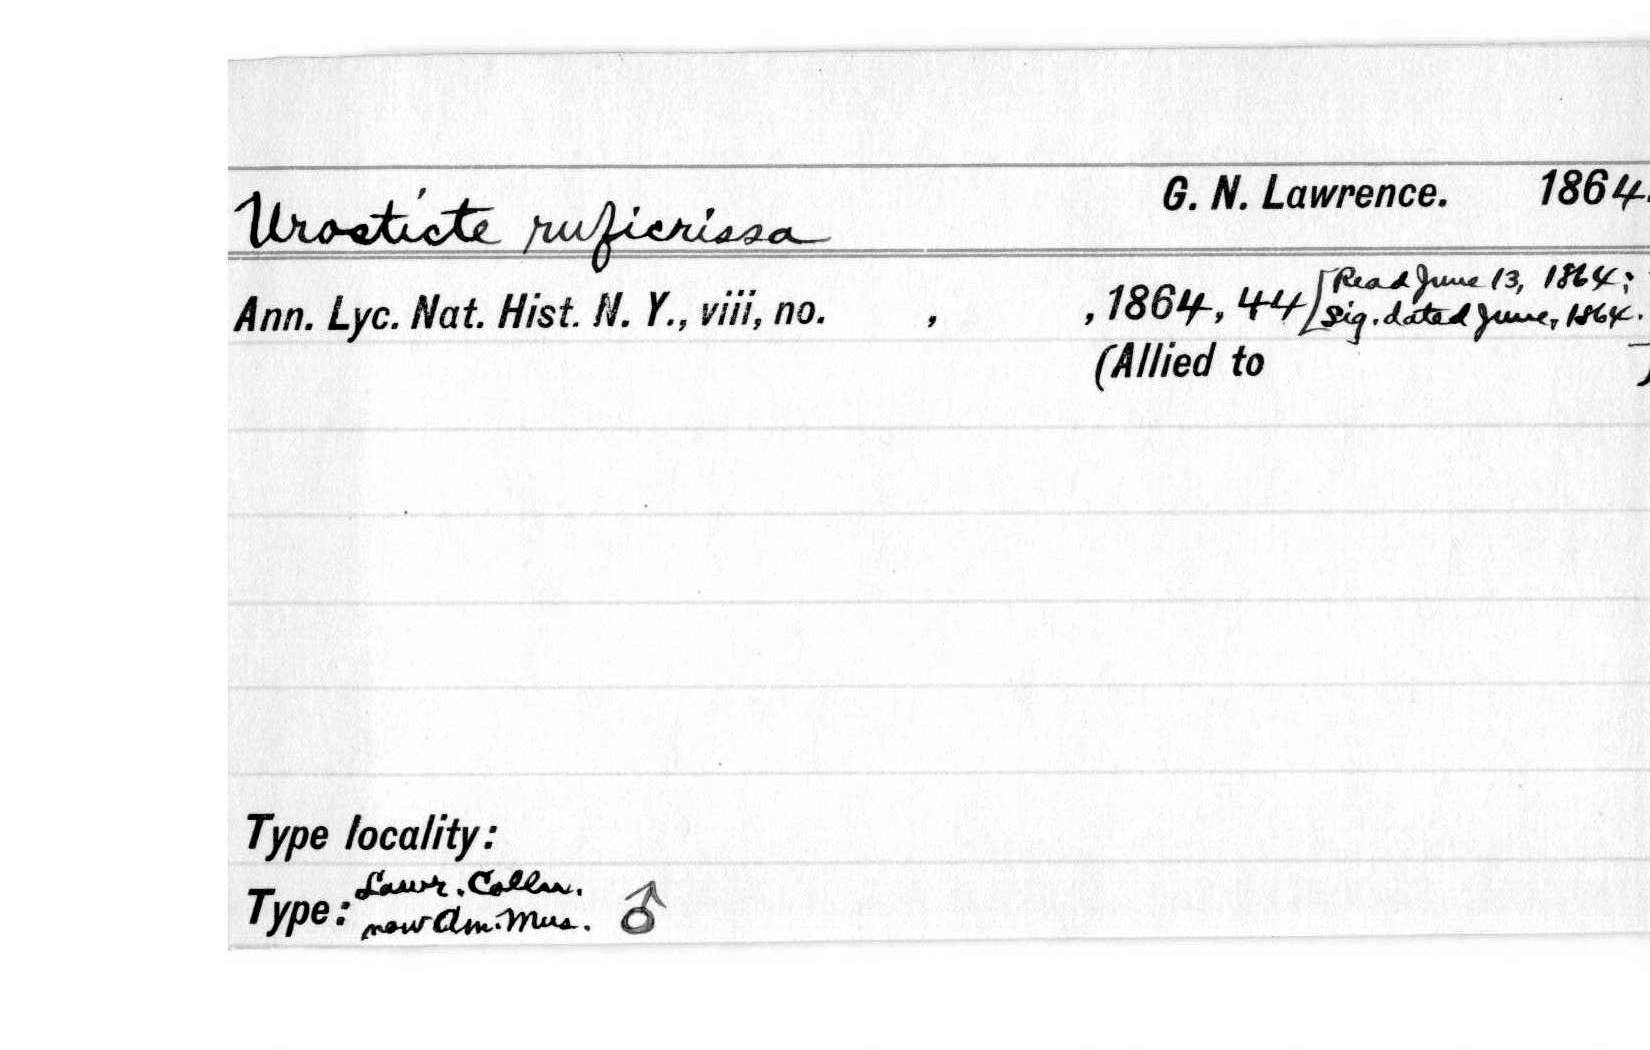 Urosticte ruficrissa G. N. Lawrence. 1864.
Ann. Lyc. Nat. Hist. N. Y., viii, no. , , 1864, 44 [Read June 13, 1864;
Sig. dated June, 1864.
(Allied to )
Type locality:
Type: Lawr. Colln.
now Am. Mus. ♂